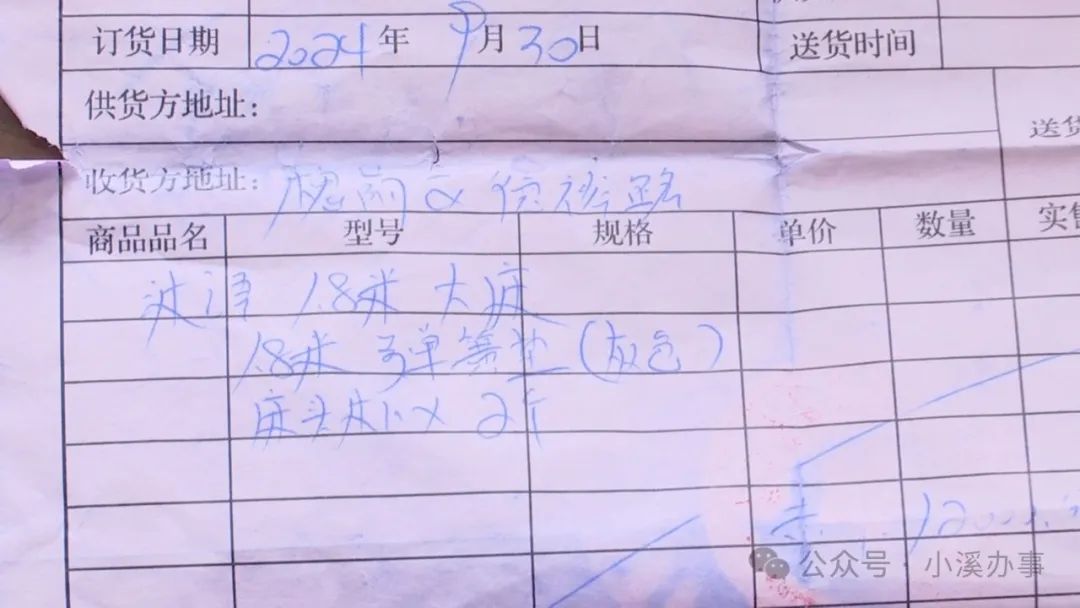 订货日期 2024年 9月30日 送货时间
供货方地址：
送货
收货方地址：
商品品名 型号 规格 单价 数量 实售
1.8米 大床
1.8米 弹簧垫（灰色）
床头 2个
公众号·小溪办事